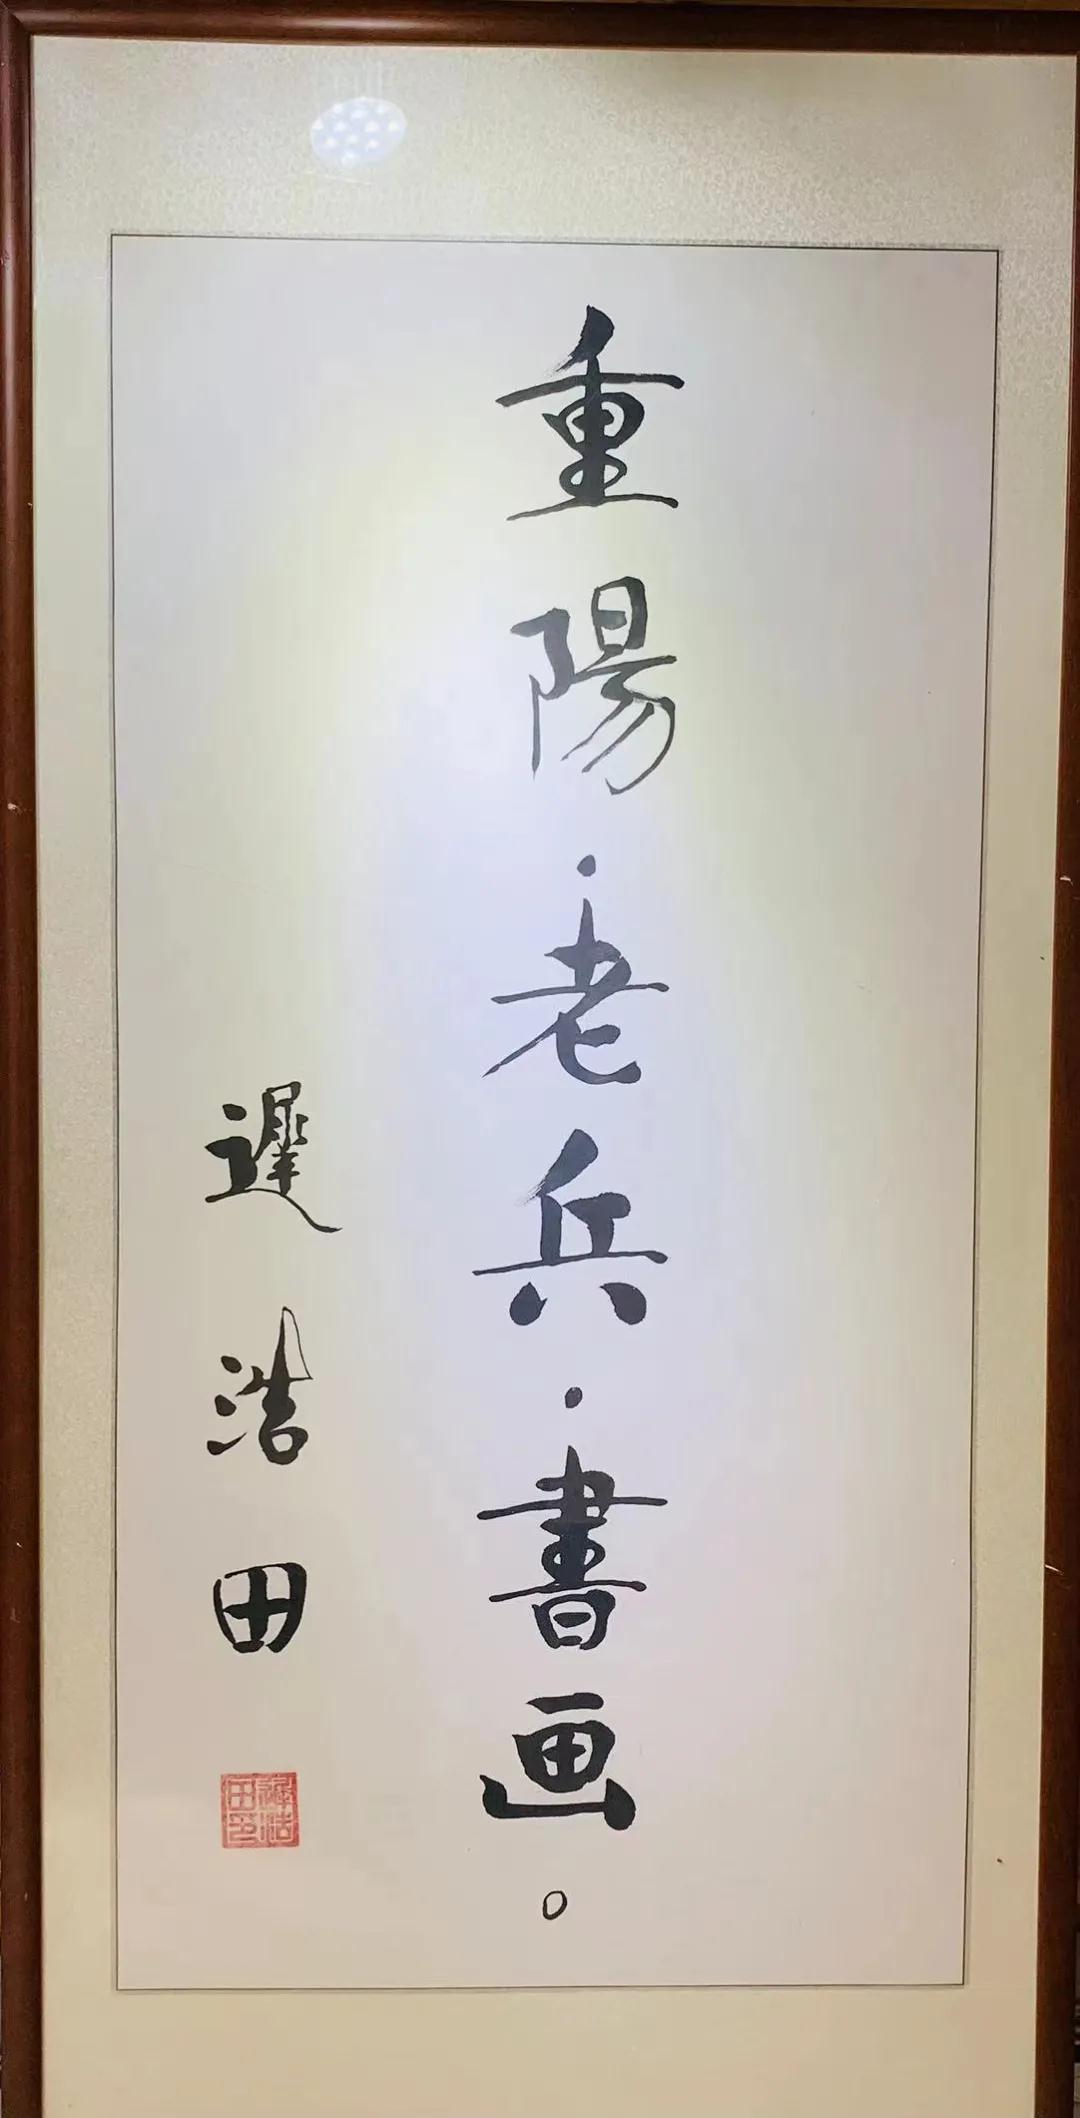 重陽·老兵·書画。
遲浩田
遲浩田印